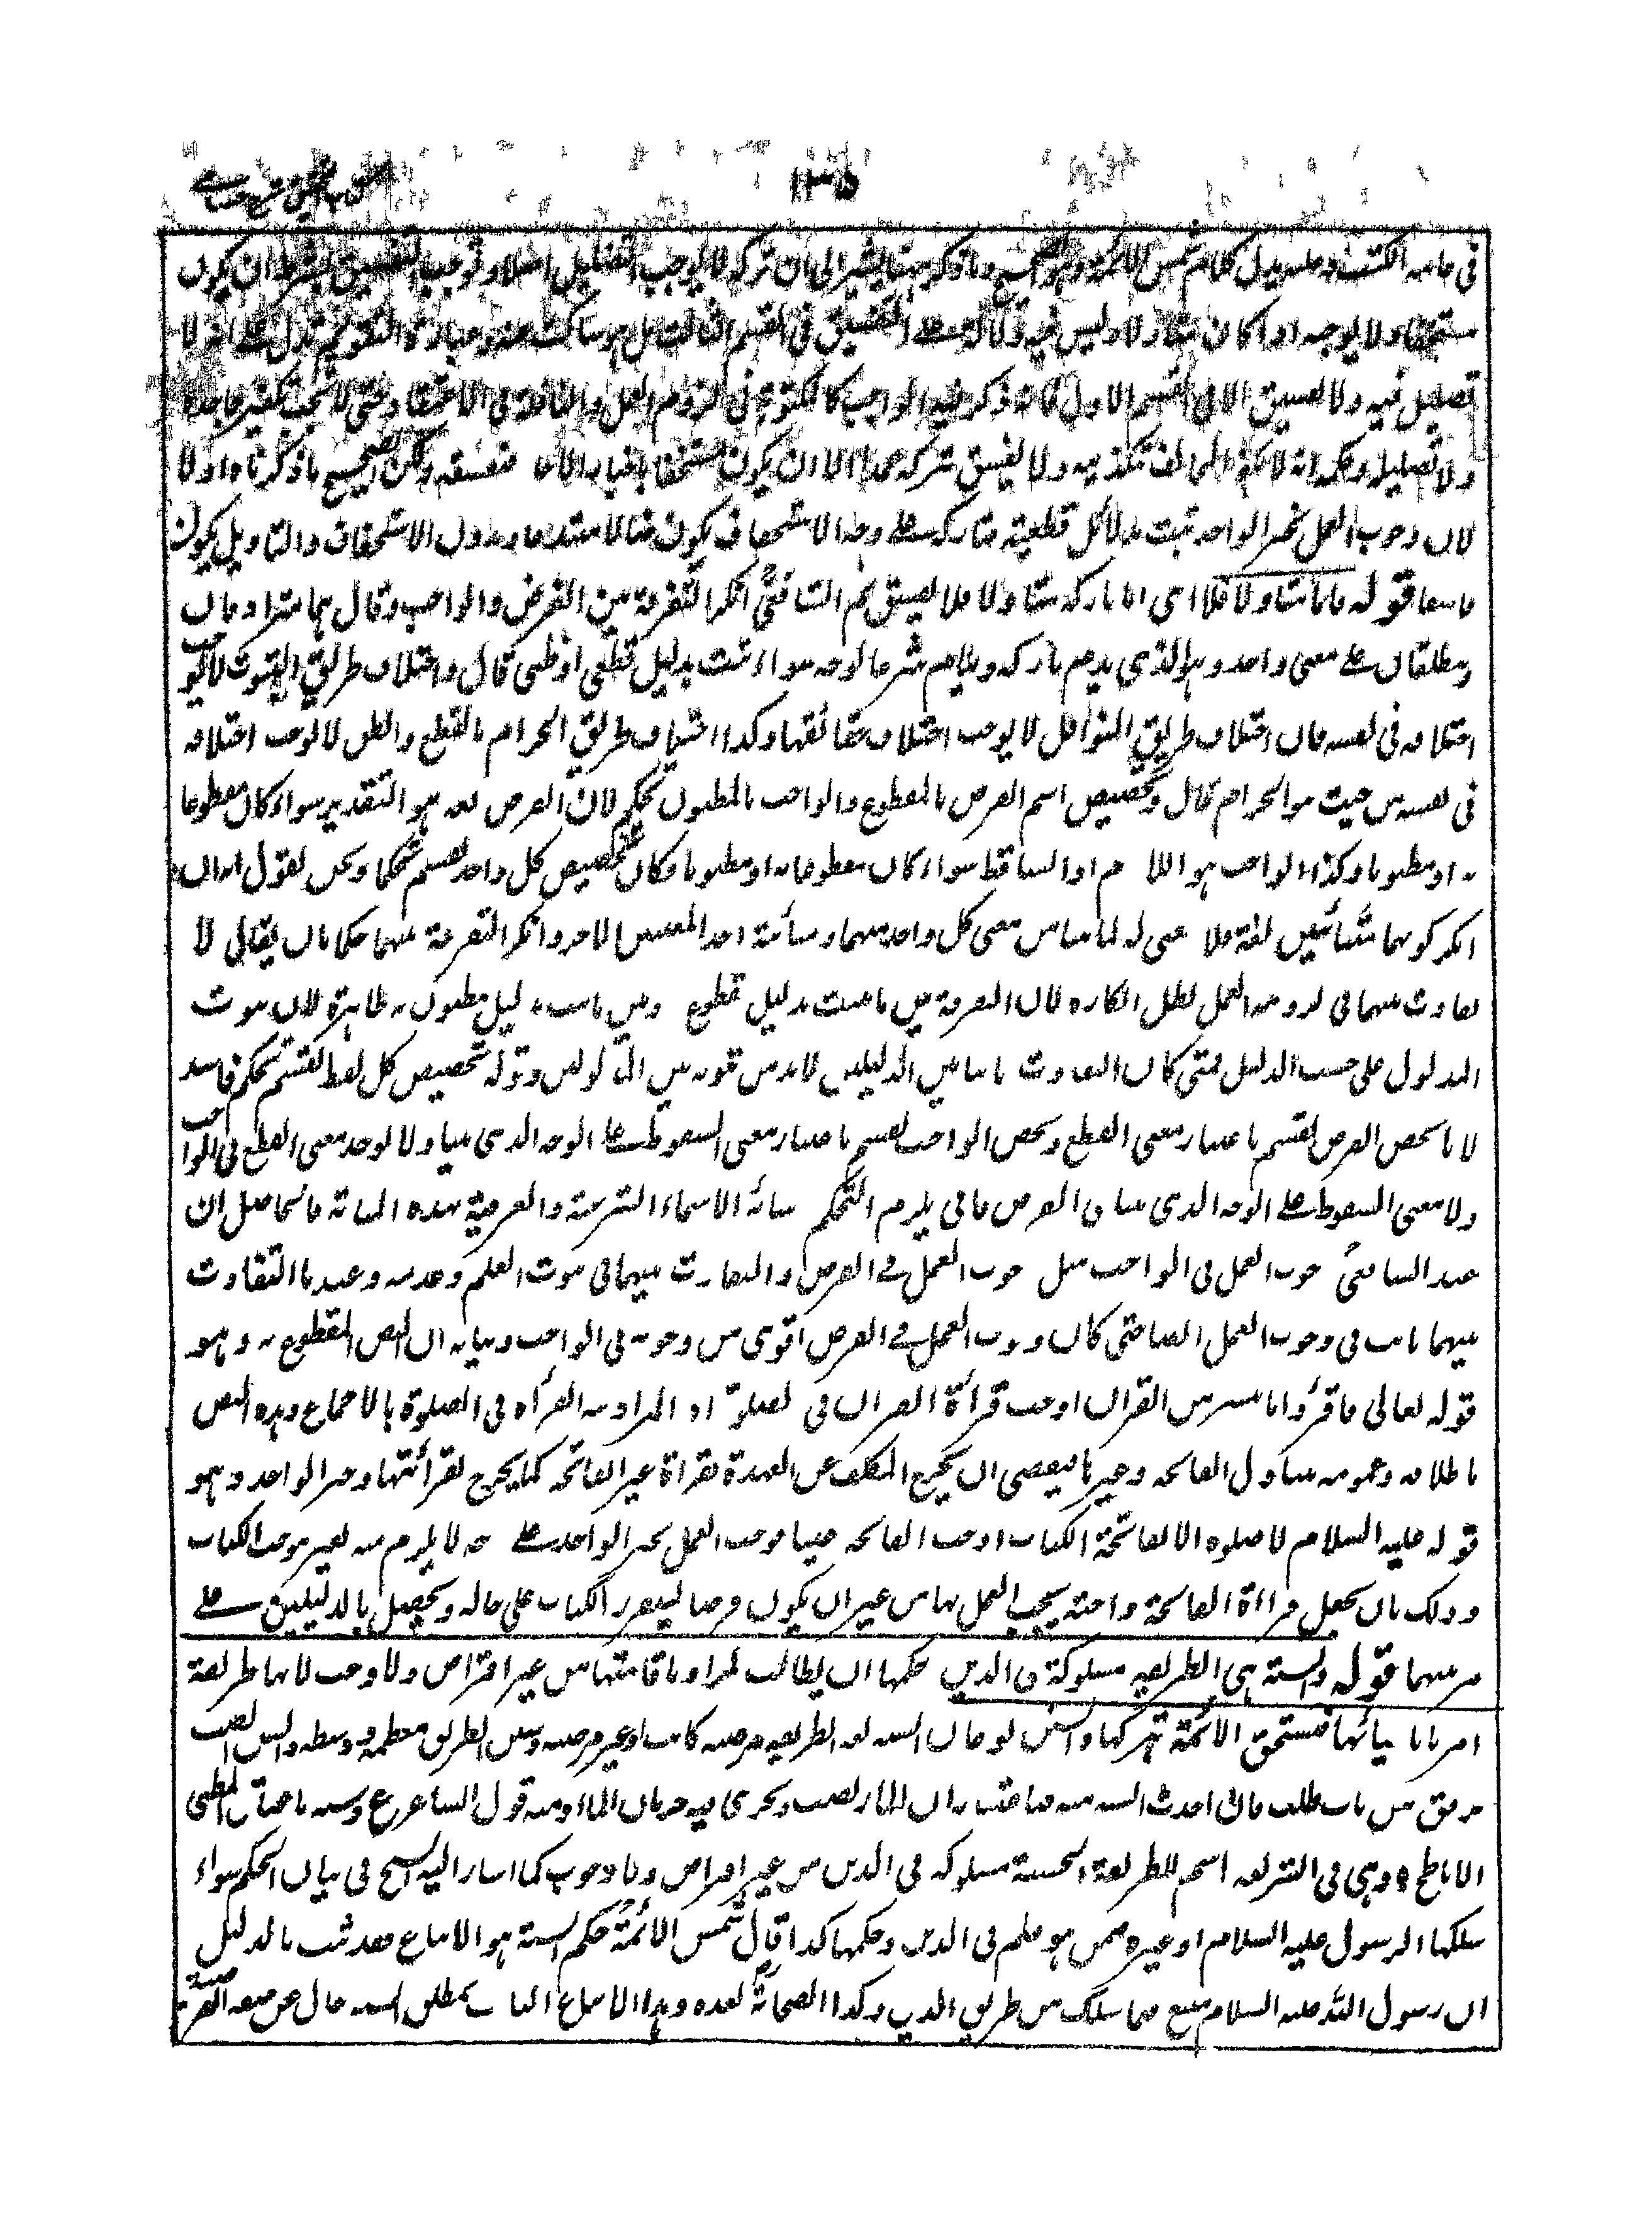 ۱۳۵
في عامة الكتب وعليه يدل كلام شمس الائمة وهو الصحيح وما ذكر ههنا يشير الى ان تركه لا يوجب التضليل اصلا ويوجب التفسيق بشرط ان يكون
مستخفا ولا يوجبه اذا كان متأولا وليس فيه دلالة على التفسيق في القسم الثالث بل هو ساكت عنه وعبارة التقويم تدل على انه لا
تضليل فيه ولا تفسيق الا في القسم الاول فانه ذكر فيه الواجب كالمكتوبة في لزوم العمل والنافلة في الاعتقاد حتى لا يجب تكفير جاحده
ولا تضليله وحكمه انه لا يكفر المخالف بتكذيبه ولا يفسق بتركه عملا الا ان يكون مستخفا باخبار الآحاد فتفسقه ولكن الصحيح ما ذكرناه اولا
لان وجوب العمل بخبر الواحد ثبت بدلائل قطعية فتاركه على وجه الاستخفاف يكون ضالا مبتدعا وبدون الاستخفاف والتاويل يكون
فاسقا قوله فاما متأولا فلا اي اما تاركه متأولا فلا يفسق ثم الشافعي انكر التفرقة بين الفرض والواجب وقال هما مترادفان
ويطلقان على معنى واحد وهو الذي يذم تاركه ويلام شرعا بوجه سواء ثبت بدليل قطعي او ظني قال واختلاف طريق الثبوت لا يوجب
اختلافه في نفسه فان اختلاف طريق النوافل لا يوجب اختلاف حقائقها وكذا اختلاف طريق الحرام بالقطع والظن لا يوجب اختلافه
في نفسه من حيث هو الحرام قال وتخصيص اسم الفرض بالمقطوع والواجب بالمظنون تحكم لان الفرض لغة هو التقدير سواء كان مقطوعا
به او مظنونا وكذا الواجب هو اللازم او الساقط سواء كان مقطوعا به او مظنونا فكان تخصيص كل واحد بقسم تحكما ونحن نقول ان
انكر كونهما متباينين لغة فلا معنى له لما بينا من معنى كل واحد منهما ومباينة احد المعنيين الآخر وان انكر التفرقة بينهما حكما بان يقال لا
تفاوت بينهما في لزوم العمل بطل انكاره لان التفرقة بين ما ثبت بدليل مقطوع وبين ما ثبت بدليل مظنون به ظاهرة لان ثبوت
المدلول على حسب الدليل فمتى كان التفاوت ثابتا بين الدليلين لا بد من ثبوته بين المدلولين وقوله تخصيص كل لفظ بقسم تحكم فاسد
لانا نخص الفرض بقسم باعتبار معنى القطع ونخص الواجب بقسم باعتبار معنى السقوط على الوجه الذي بينا ولا يوجد معنى القطع في الواجب
ولا معنى السقوط على الوجه الذي بينا في الفرض فانى يلزم التحكم وسائر الاسماء الشرعية والعرفية بهذه المثابة فالحاصل ان
عند الشافعي وجوب العمل في الواجب مثل وجوب العمل في الفرض والتفاوت بينهما في ثبوت العلم وعدمه وعندنا التفاوت
بينهما ثابت في وجوب العمل ايضا حتى كان وجوب العمل في الفرض اقوى من وجوبه في الواجب وبيانه ان النص المقطوع به وهو
قوله تعالى فاقرؤا ما تيسر من القرآن اوجب قراءة القرآن في الصلوة اذ المراد منه القرأة في الصلوة بالاجماع وهذه النص
باطلاقه وعمومه يتناول الفاتحة وغيرها فيقتضي ان يخرج المكلف عن العهدة بقراءة غير الفاتحة كما يخرج بقرأتها وخبر الواحد وهو
قوله عليه السلام لا صلوة الا بفاتحة الكتاب اوجب الفاتحة عينا فوجب العمل بخبر الواحد على وجه لا يلزم منه تغيير موجب الكتاب
وذلك بان يجعل قراءة الفاتحة واجبة يجب العمل بها من غير ان يكون فرضا ليتقرر الكتاب على حاله ويحصل العمل بالدليلين على
مرتبتهما قوله والسنة هي الطريقة المسلوكة في الدين حكمها ان يطالب المرء باقامتها من غير افتراض ولا وجوب لانها طريقة
امرنا باحيائها فنستحق اللائمة بتركها والسنن نوعان السنة لغة الطريقة مرضية كانت او غير مرضية وسنن الطريق معظمه ووسطه والسن الصب
برفق من باب طلب فان اخذت السنة منه فباعتبار ان المار يصب ويجري فيه جريان الماء ومنه قول الشاعر ع وسنت باعناق المطي
الاباطح وهي في الشريعة اسم للطريقة الحسنة المسلوكة في الدين من غير افتراض ولا وجوب كما اشار اليه الشيخ في بيان الحكم سواء
سلكها الرسول عليه السلام او غيره ممن هو علم في الدين وحكمها كذا قال شمس الائمة حكم السنة هو الاتباع فقد ثبت بالدليل
ان رسول الله عليه السلام متبع فيما سلك من طريق الدين وكذا الصحابة بعده وهذا الاتباع الثابت بمطلق السنة خال عن صفة الفرضية